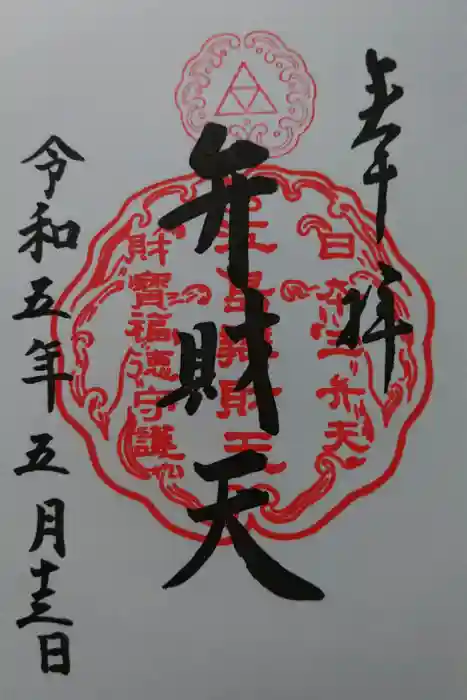 奉拝
弁天
弁財天
財天
財寶福徳守護
令和五年五月十三日